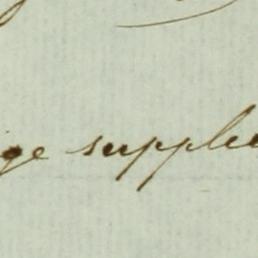 ge supplie